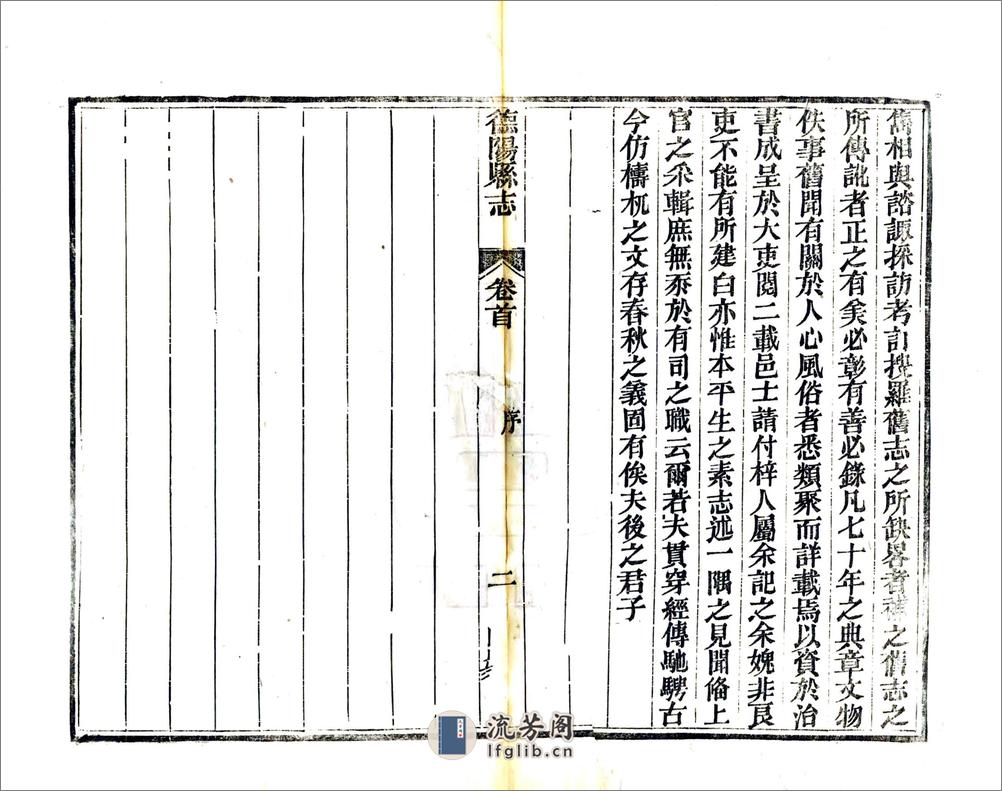 雋相與諮諏採訪考訂搜羅舊志之所缺畧者補之舊志之
所傳訛者正之有美必彰有善必錄凡七十年之典章文物
佚事舊聞有關於人心風俗者悉類聚而詳載焉以資於治
書成呈於大吏閱二載邑士請付梓人屬余記之余媿非良
吏不能有所建白亦惟本平生之素志述一隅之見聞備上
官之采輯庶無忝於有司之職云爾若夫貫穿經傳馳騁古
今仿檮杌之文存春秋之義固有俟夫後之君子
德陽縣志 卷首 序 二
流芳阁
lfglib.cn